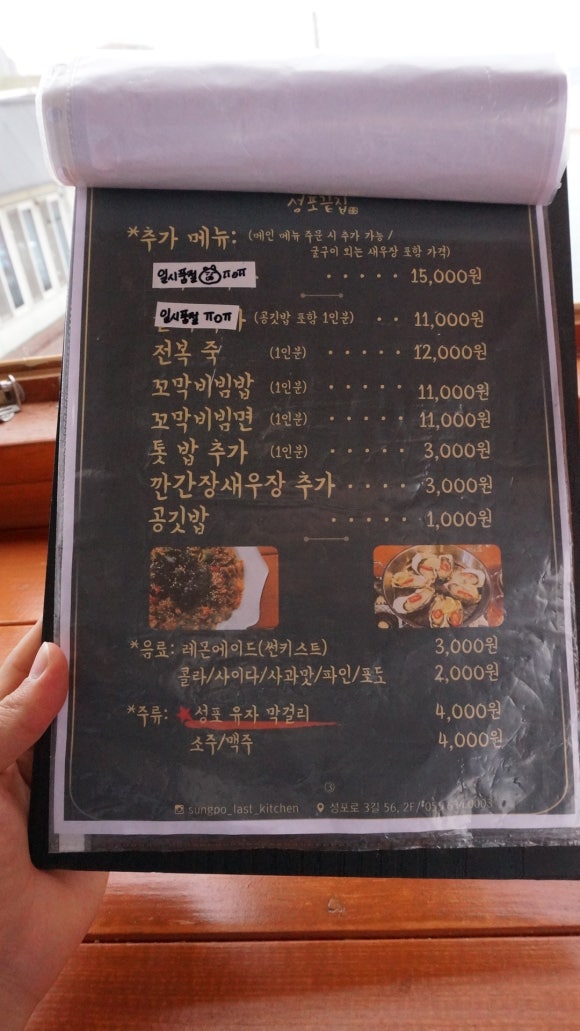 성포끝집
*추가 메뉴: (메인 메뉴 주문 시 추가 가능 /
굴구이 외는 새우장 포함 가격)
일시품절 ㅠㅠ ..... 15,000원
일시품절 ㅠㅠ (공깃밥 포함 1인분) .. 11,000원
전복 죽 (1인분) ..... 12,000원
꼬막비빔밥 (1인분) ..... 11,000원
꼬막비빔면 (1인분) ..... 11,000원
톳 밥 추가 (1인분) ..... 3,000원
깐간장새우장 추가 .... 3,000원
공깃밥 ..... 1,000원
*음료: 레몬에이드(썬키스트) 3,000원
콜라/사이다/사과맛/파인/포도 2,000원
*주류: ★성포 유자 막걸리 4,000원
소주/맥주 4,000원
③
sungpo_last_kitchen 성포로 3길 56, 2F/